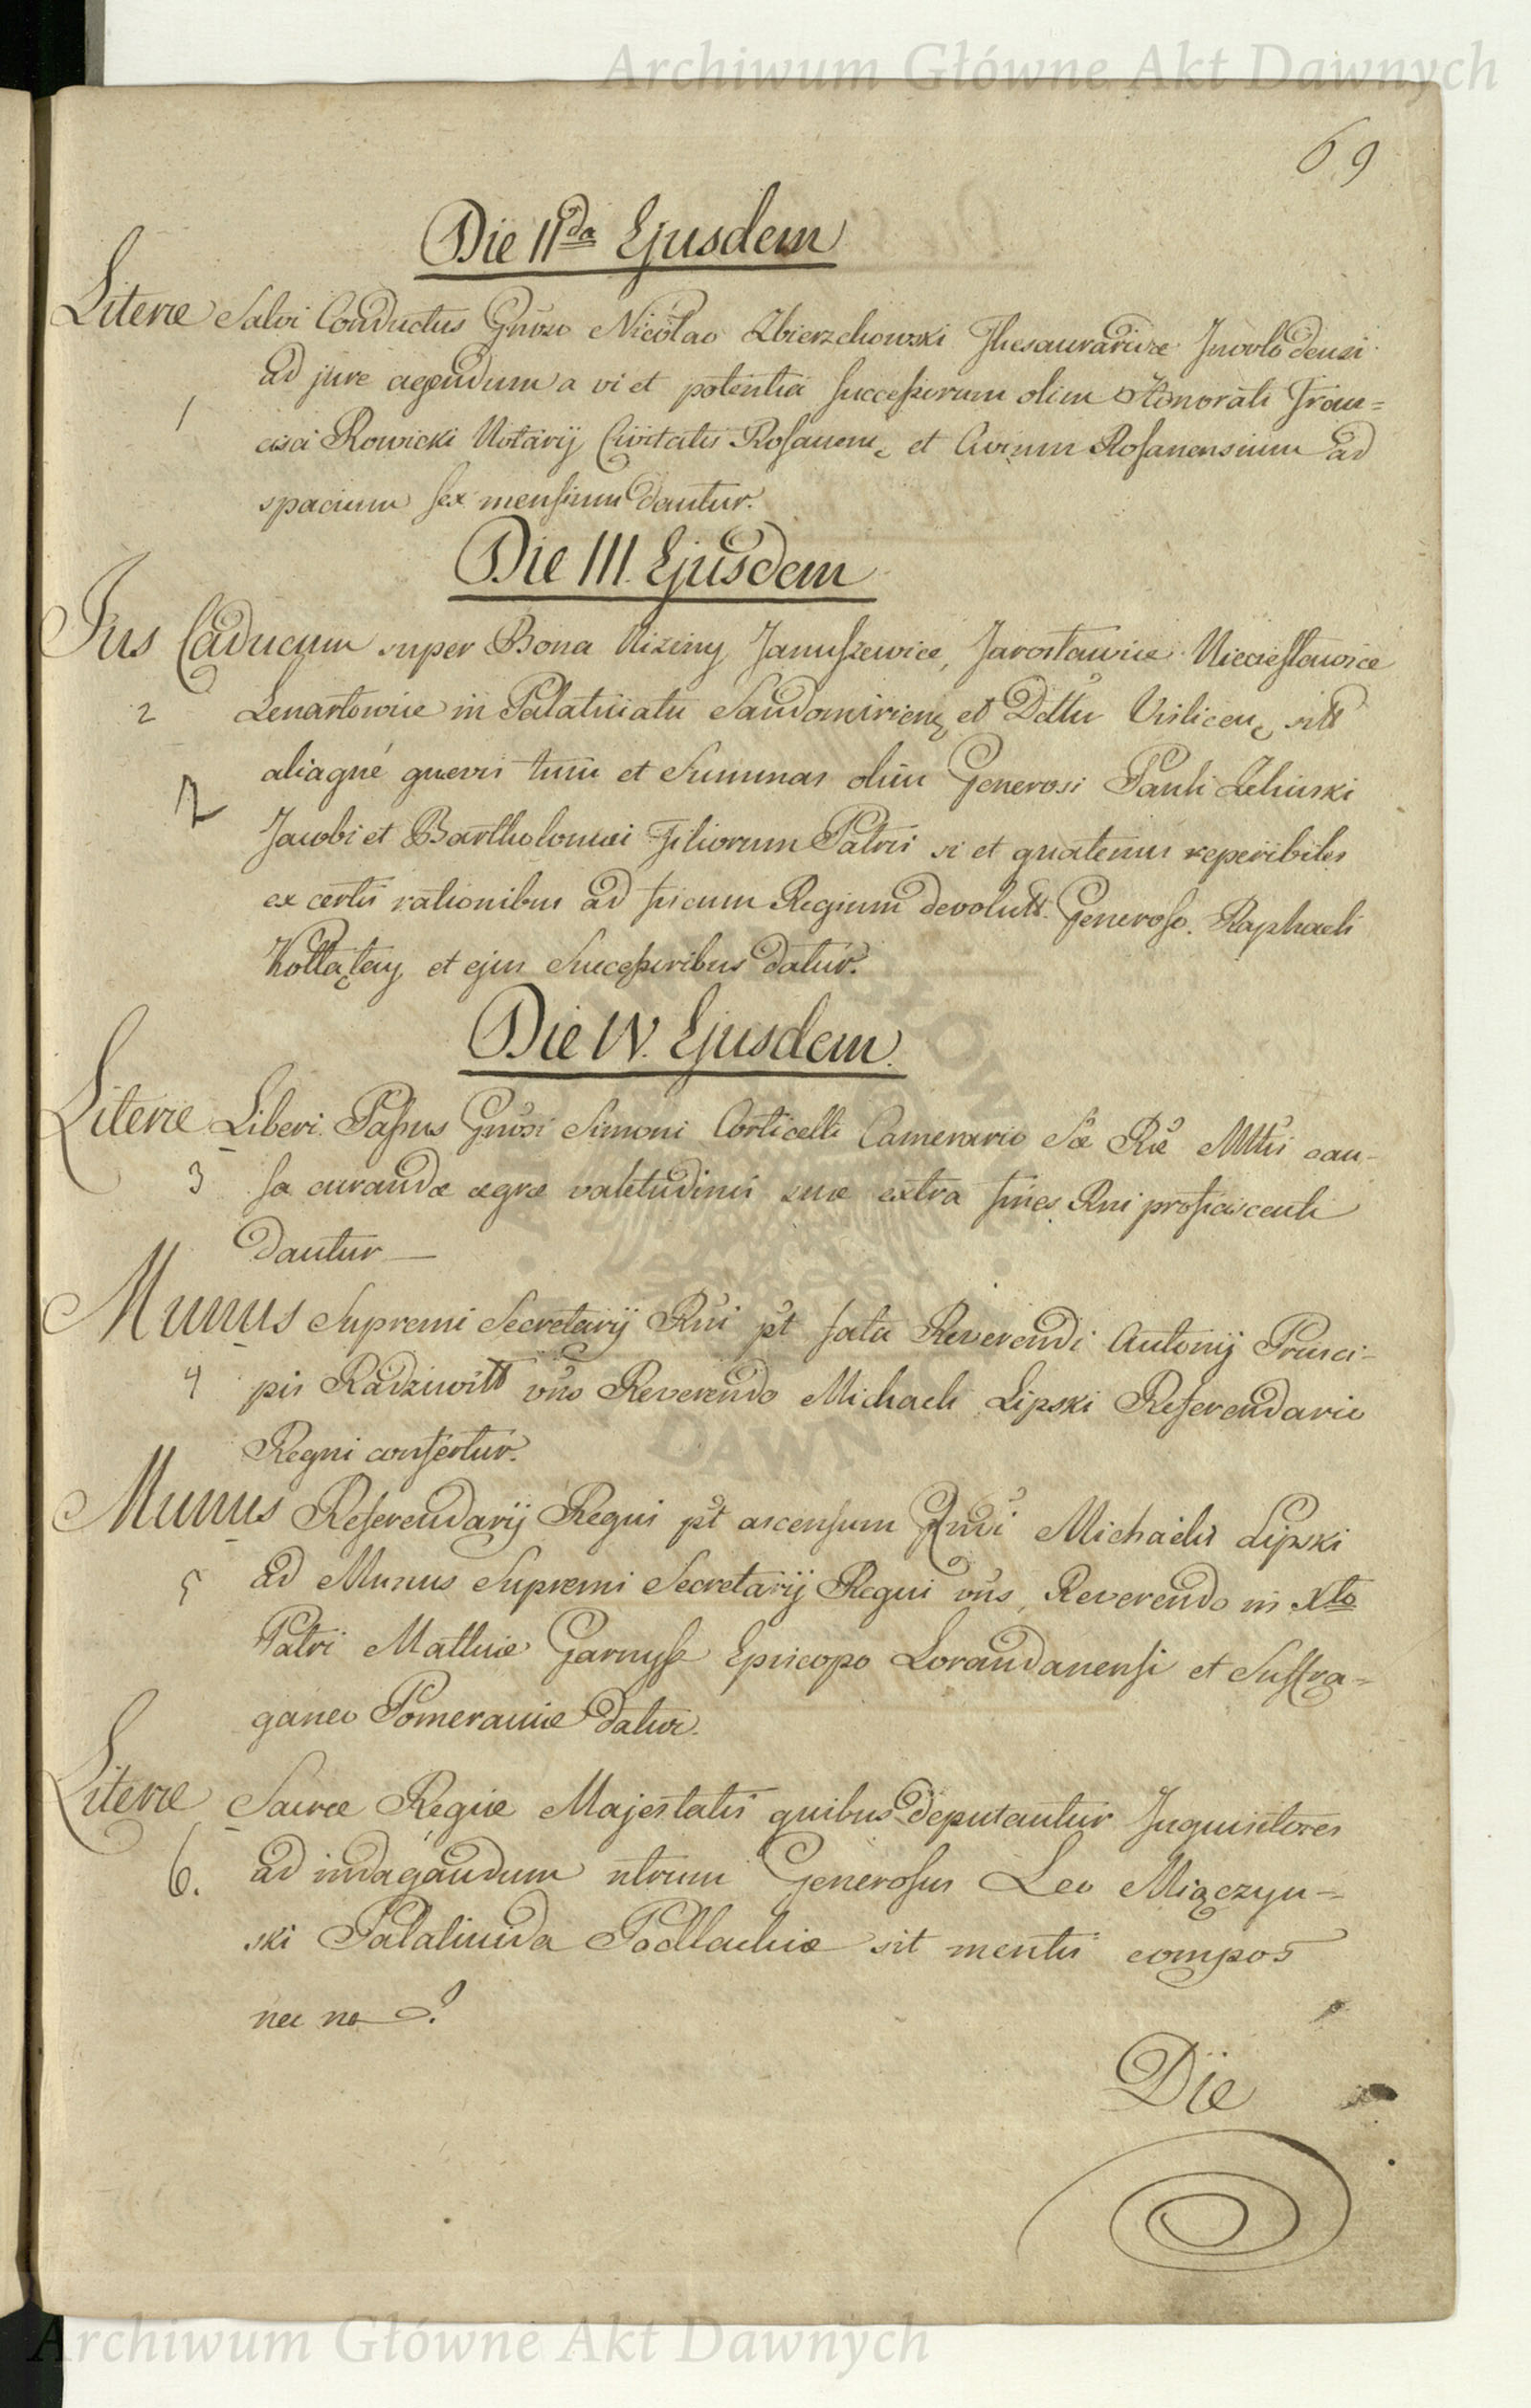 Archiwum Główne Akt Dawnych
69
Die IIda Ejusdem
Literæ Salvi Conductus Gnoso Nicolao Zbierzchowski Thesaurario Inovlodensi
ad jure agendum a vi et potentia successorum olim Honorati Fran=
1
cisci Rowicki Notarij Civitatis Rosanen, et Civium Rosanensium ad
spacium sex mensium dantur.
Die III. Ejusdem
Jus Caducum super Bona Niziny, Januszewice, Jarosławice
2 Lenartowice in Palatinatu Sandomirien, et Dttu Vislicen, sitt
aliaque quævis tum et Summas olim Generosi Pauli Zeliński
2
Jacobi et Bartholomæi Filiorum Patris si et quatenus reperibiles
ex certis rationibus ad fiscum Regium devolutt. Generoso. Raphaeli
Kołłątay et ejus Successoribus datur.
Die IV. Ejusdem.
Literæ Liberi Passus Gnosi Simoni Corticelli Camerario Sæ Ræ Mttis cau-
3 sa curandæ ægræ valetudinis suæ extra fines Rni proficiscenti
dantur —
Munus Supremi Secretarij Rni pt fata Reverendi Antonij Princi-
4 pis Radziwiłł vns Reverendo Michaeli Lipski Referendario
Regni confertur.
Munus Referendarij Regni pt ascensum Rndi Michaelis Lipski
5 ad Munus Supremi Secretarij Regni vns, Reverendo in Xto
Patri Mathiæ Garnysz Episcopo Lorandanensi et Suffra=
ganeo Pomeraniæ datur.
Literæ Sacræ Regiæ Majestatis quibus deputantur Inquisitores
6. ad indagandum utrum Generosus Leo Miączyn=
ski Palatinida Podlachiæ sit mentis compos
nec ne?
Die
Archiwum Główne Akt Dawnych